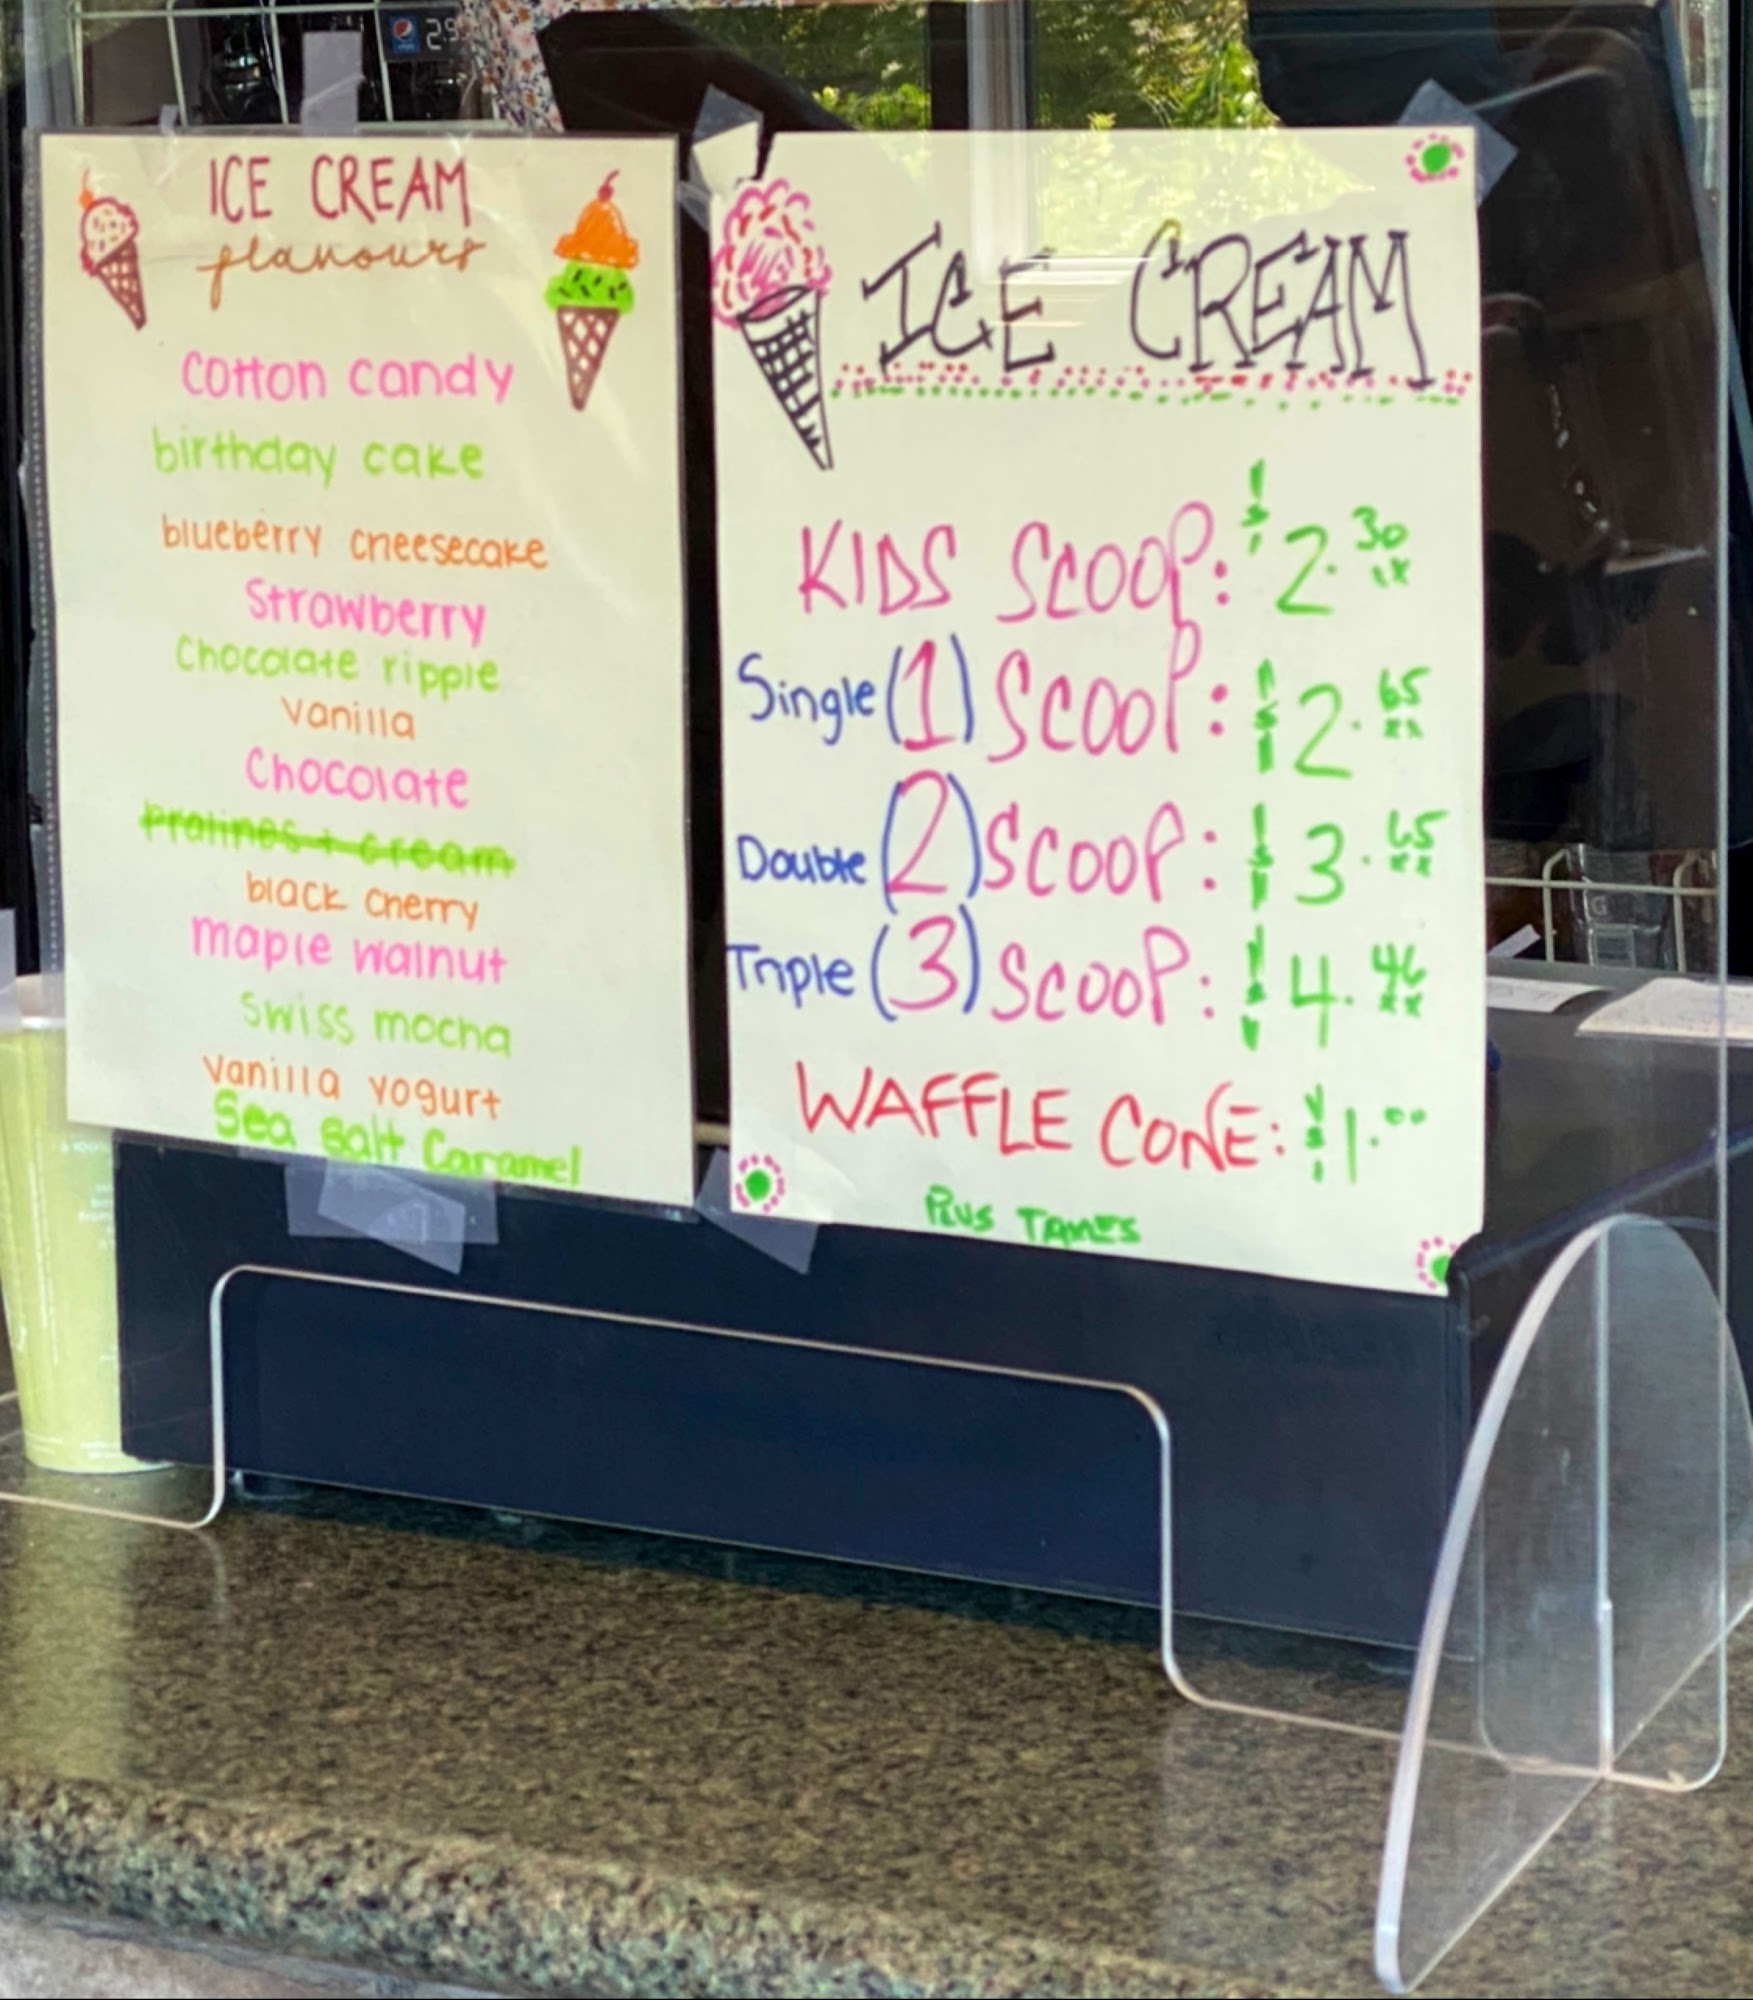 2.9
ICE CREAM
flavours
cotton candy
birthday cake
blueberry cheesecake
Strawberry
Chocolate ripple
vanilla
Chocolate
Pralines + cream
black cherry
maple walnut
swiss mocha
vanilla yogurt
Sea Salt Caramel
ICE CREAM
KIDS SCOOP: $2.30
Single (1) SCOOP: $2.65
Double (2) SCOOP: $3.65
Triple (3) SCOOP: $4.46
WAFFLE CONE: $1.00
PLUS TAXES